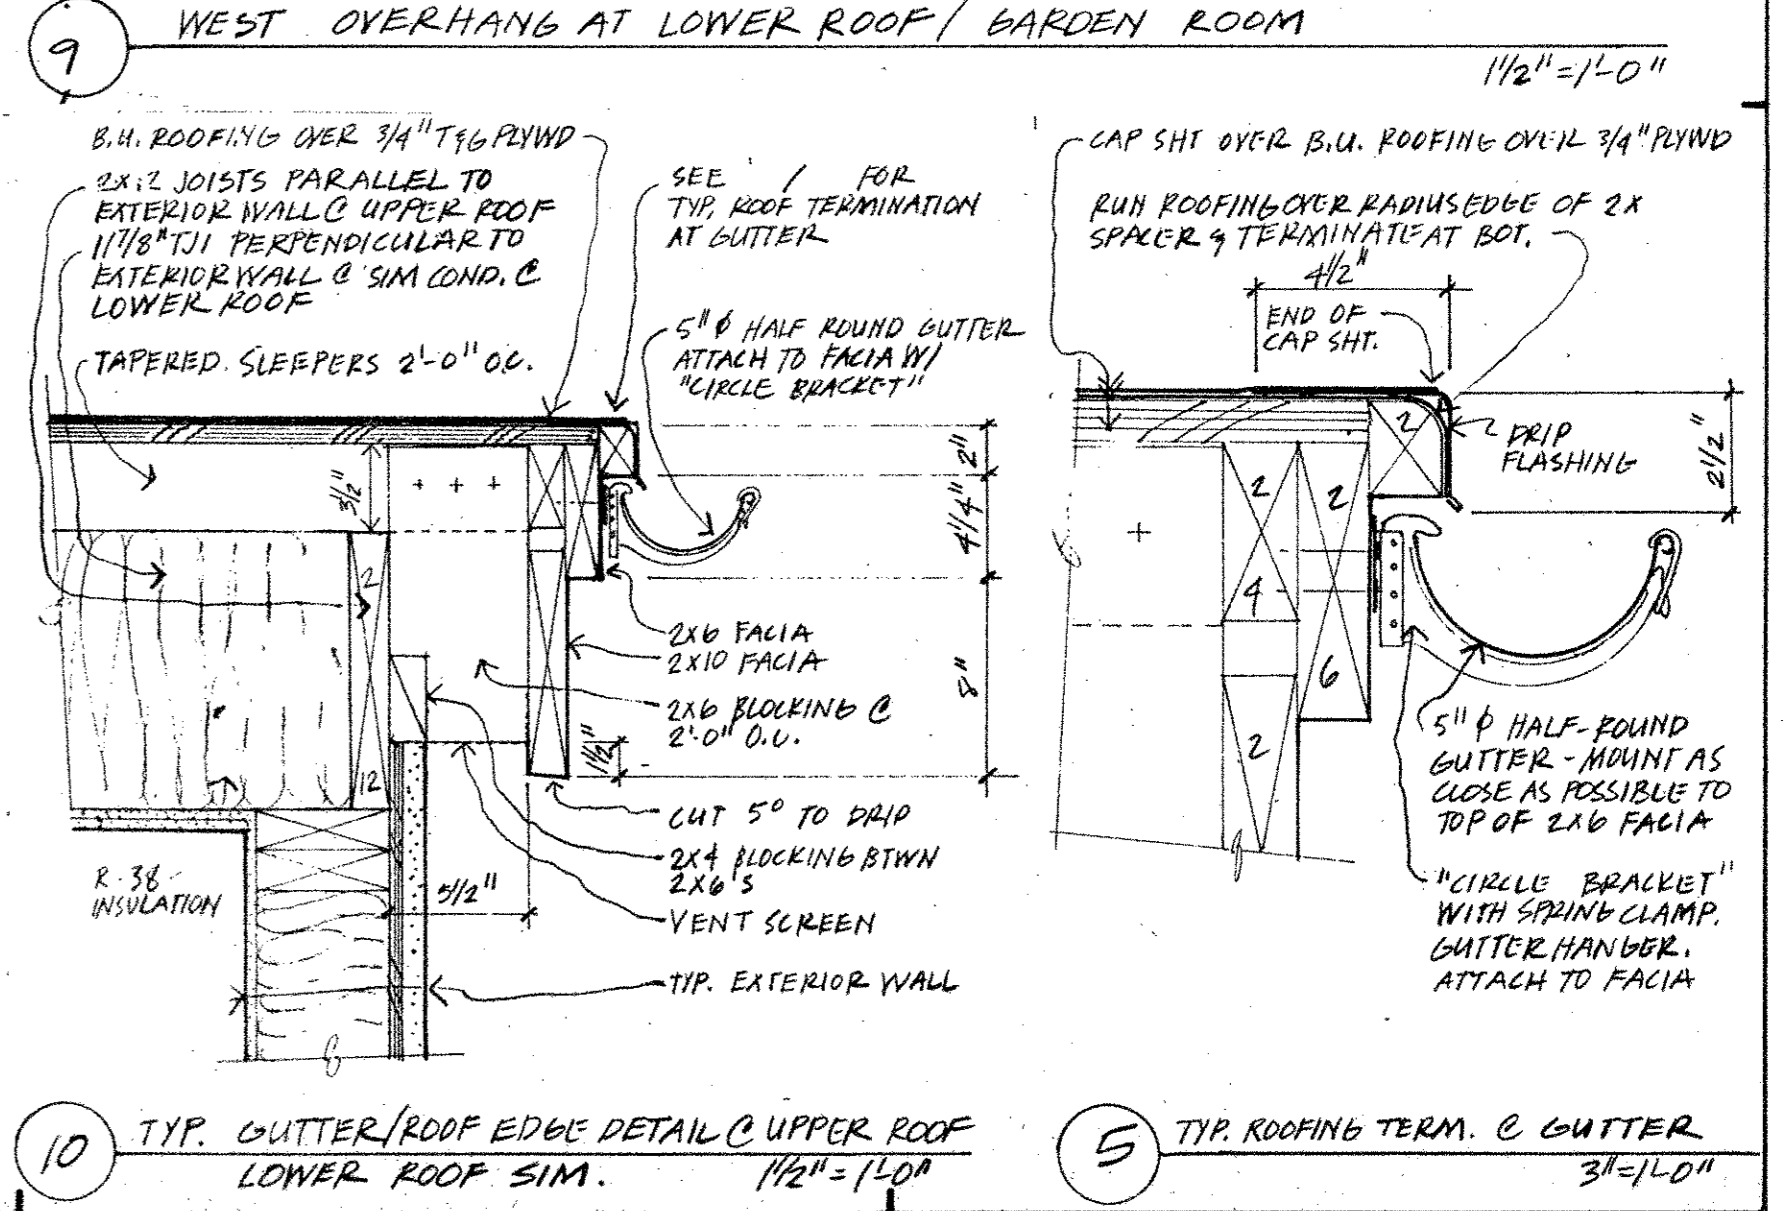 9
WEST OVERHANG AT LOWER ROOF / GARDEN ROOM
1 1/2" = 1'-0"
B.U. ROOFING OVER 3/4" T&G PLYWD
2X12 JOISTS PARALLEL TO
EXTERIOR WALL @ UPPER ROOF
11 7/8" TJI PERPENDICULAR TO
EXTERIOR WALL @ SIM COND. @
LOWER ROOF
TAPERED SLEEPERS 2'-0" O.C.
SEE / FOR
TYP. ROOF TERMINATION
AT GUTTER
5" ϕ HALF ROUND GUTTER
ATTACH TO FACIA W/
"CIRCLE BRACKET"
3 1/2"
2"
4 1/4"
8"
2
12
2X6 FACIA
2X10 FACIA
2X6 BLOCKING @
2'-0" O.C.
1 1/2"
CUT 5° TO DRIP
2X4 BLOCKING BTWN
2X6'S
VENT SCREEN
5 1/2"
R-38
INSULATION
TYP. EXTERIOR WALL
10
TYP. GUTTER/ROOF EDGE DETAIL @ UPPER ROOF
LOWER ROOF SIM.
1 1/2" = 1'-0"
CAP SHT OVER B.U. ROOFING OVER 3/4" PLYWD
RUN ROOFING OVER RADIUS EDGE OF 2X
SPACER & TERMINATE AT BOT.
4 1/2"
END OF
CAP SHT.
2
DRIP
FLASHING
2 1/2"
2
2
4
6
2
5" ϕ HALF-ROUND
GUTTER - MOUNT AS
CLOSE AS POSSIBLE TO
TOP OF 2X6 FACIA
"CIRCLE BRACKET"
WITH SPRING CLAMP.
GUTTER HANGER.
ATTACH TO FACIA
5
TYP. ROOFING TERM. @ GUTTER
3" = 1'-0"